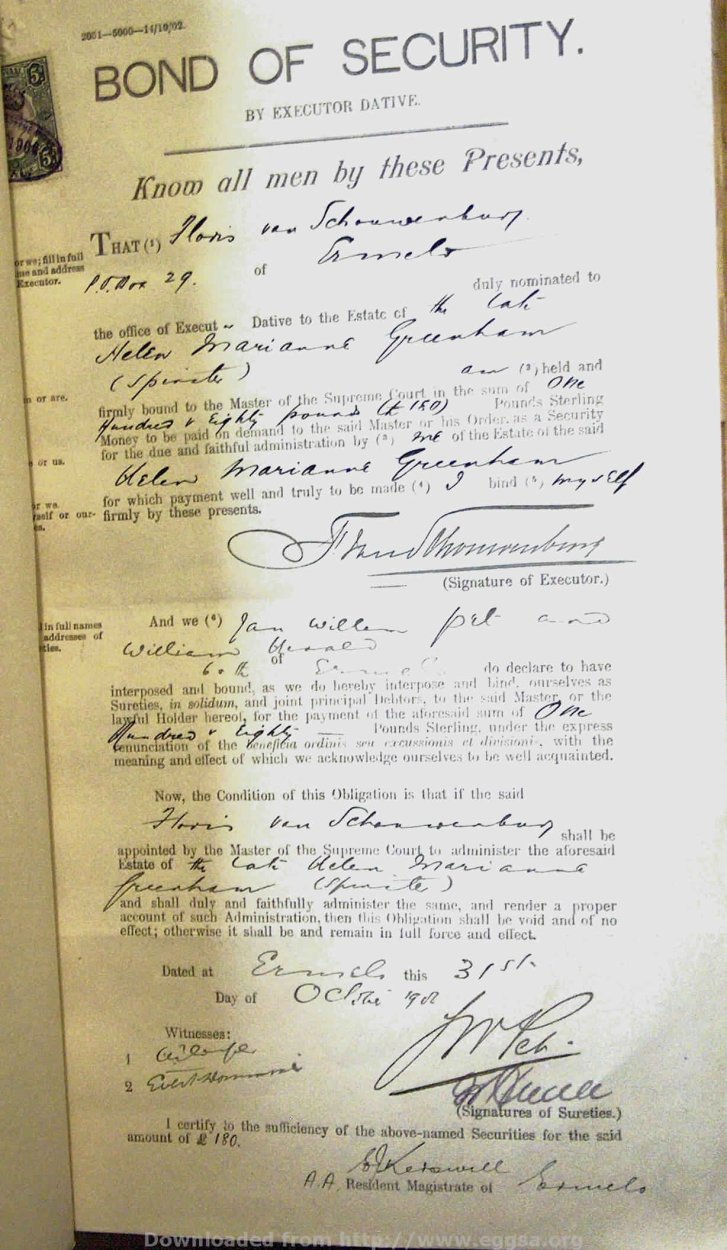 2051—5000—14/10/02.
BOND OF SECURITY.
BY EXECUTOR DATIVE.
Know all men by these Presents,
THAT (¹) Floris van Schouwenburg
or we; fill in full
me and address
Executor.
P.O. Box 29. of Ermelo
duly nominated to
the office of Execut Dative to the Estate of the late
Helen Marianne Greenham
(Spinster) am (²) held and
m or are.
firmly bound to the Master of the Supreme Court in the sum of One
Hundred & Eighty pounds (£180) Pounds Sterling
Money to be paid on demand to the said Master or his Order, as a Security
for the due and faithful administration by (³) me of the Estate of the said
e or us.
Helen Marianne Greenham
for which payment well and truly to be made (⁴) I bind (⁵) myself
or we.
yself or our-
es.
firmly by these presents.
(Signature of Executor.)
in full names
addresses of
ties.
And we (⁶) Jan Willem Pet and
William
both of Ermelo do declare to have
interposed and bound, as we do hereby interpose and bind, ourselves as
Sureties, in solidum, and joint principal Debtors, to the said Master, or the
lawful Holder hereof, for the payment of the aforesaid sum of One
Hundred & Eighty Pounds Sterling, under the express
renunciation of the beneficia ordinis seu excussionis et divisionis, with the
meaning and effect of which we acknowledge ourselves to be well acquainted.
Now, the Condition of this Obligation is that if the said
Floris van Schouwenburg shall be
appointed by the Master of the Supreme Court to administer the aforesaid
Estate of the late Helen Marianne
Greenham (Spinster)
and shall duly and faithfully administer the same, and render a proper
account of such Administration, then this Obligation shall be void and of no
effect; otherwise it shall be and remain in full force and effect.
Dated at Ermelo this 31st
Day of October 1902
Witnesses:
1
2
(Signatures of Sureties.)
I certify to the sufficiency of the above-named Securities for the said
amount of £180.
A.A. Resident Magistrate of Ermelo
Downloaded from http://www.eggsa.org